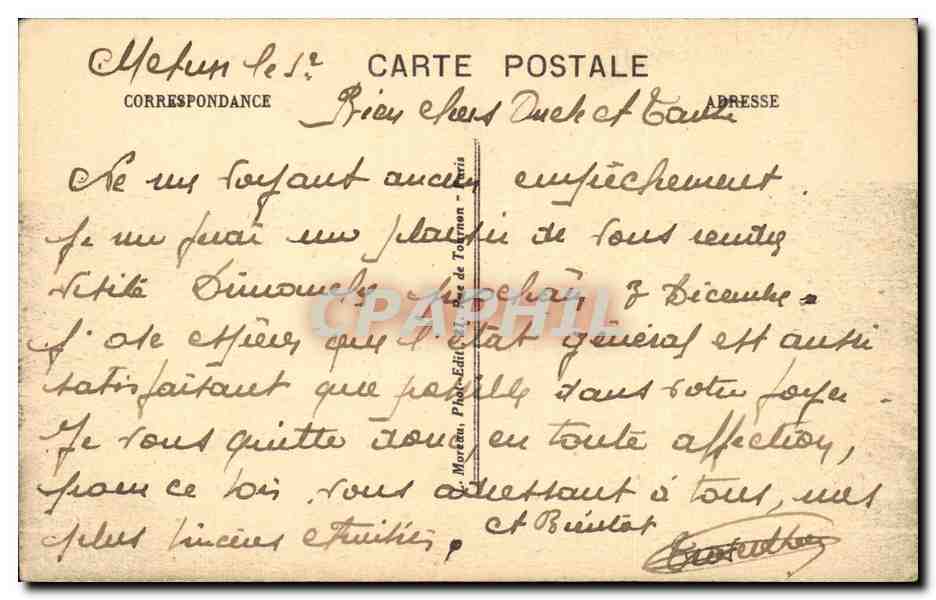 Melun le 1er
CARTE POSTALE
CORRESPONDANCE
ADRESSE
Bien chers Oncle et Tante
Ne me voyant aucun empêchement.
Je me ferai un plaisir de vous rendre
visite Dimanche prochain 3 Décembre.
J'ose espérer que l'état général est aussi
satisfaisant que possible dans votre foyer.
Je vous quitte donc, en toute affection,
pour ce soir vous adressant à tous, mes
plus sincères amitiés,
et Bientot
Moreau, Phot.-Edit. 21, Rue de Tournon - Paris
CPAPHIL